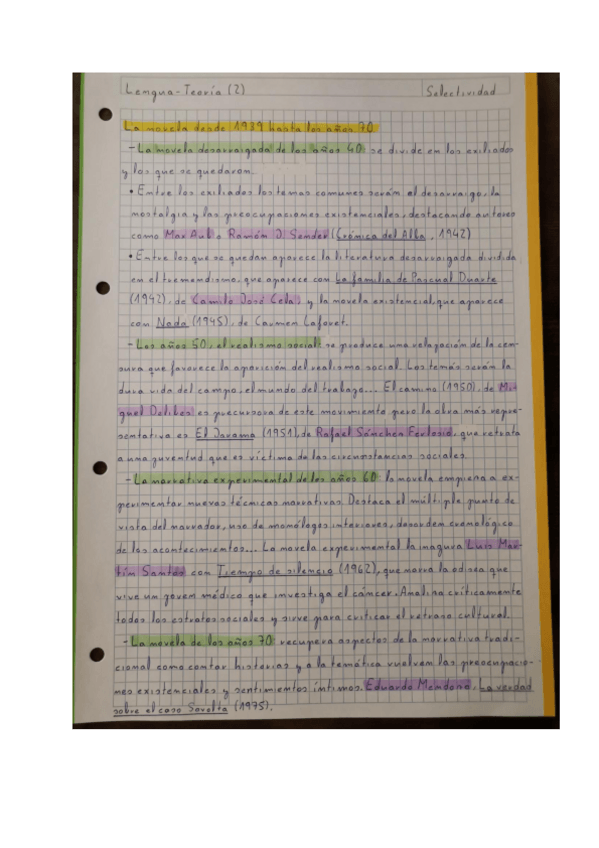 Lengua-Teoría (2) Selectividad
La novela desde 1939 hasta los años 70
- La novela desarraigada de los años 40 se divide en los exiliados
y los que se quedaron.
• Entre los exiliados los temas comunes serán el desarraigo, la
nostalgia y las preocupaciones existenciales, destacando autores
como Max Aub o Ramón J. Sender (Crónica del Alba, 1942)
• Entre los que se quedan aparece la literatura desarraigada dividida
en el tremendismo, que aparece con La familia de Pascual Duarte
(1942), de Camilo José Cela; y la novela existencial, que aparece
con Nada (1945), de Carmen Laforet.
- Los años 50, el realismo social: se produce una relajación de la cen-
sura que favorece la aparición del realismo social. Los temas serán la
dura vida del campo, el mundo del trabajo... El camino (1950), de Mi-
guel Delibes es precursora de este movimiento pero la obra más repre-
sentativa es El Jarama (1951), de Rafael Sánchez Ferlosio, que retrata
a una juventud que es víctima de las circunstancias sociales.
- La narrativa experimental de los años 60 la novela empieza a ex-
perimentar nuevas técnicas narrativas. Destaca el múltiple punto de
vista del narrador, uso de monólogos interiores, desorden cronológico
de los acontecimientos... La novela experimental la inagura Luis Mar-
tín Santos con Tiempo de silencio (1962), que narra la odisea que
vive un joven médico que investiga el cáncer. Analiza críticamente
todos los estratos sociales y sirve para criticar el retraso cultural.
- La novela de los años 70 recupera aspectos de la narrativa tradi-
cional como contar historias y a la temática vuelven las preocupacio-
nes existenciales y sentimientos íntimos. Eduardo Mendoza, La verdad
sobre el caso Savolta (1975).